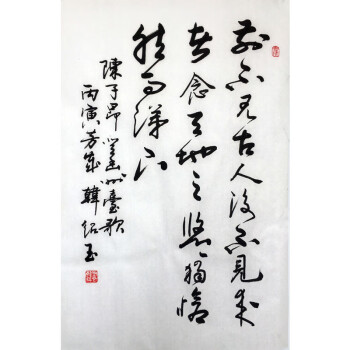 前不见古人後不見来
者念天地之悠々獨愴
然而涕下
陳子昂登幽州臺歌
丙寅芳 韓紹玉